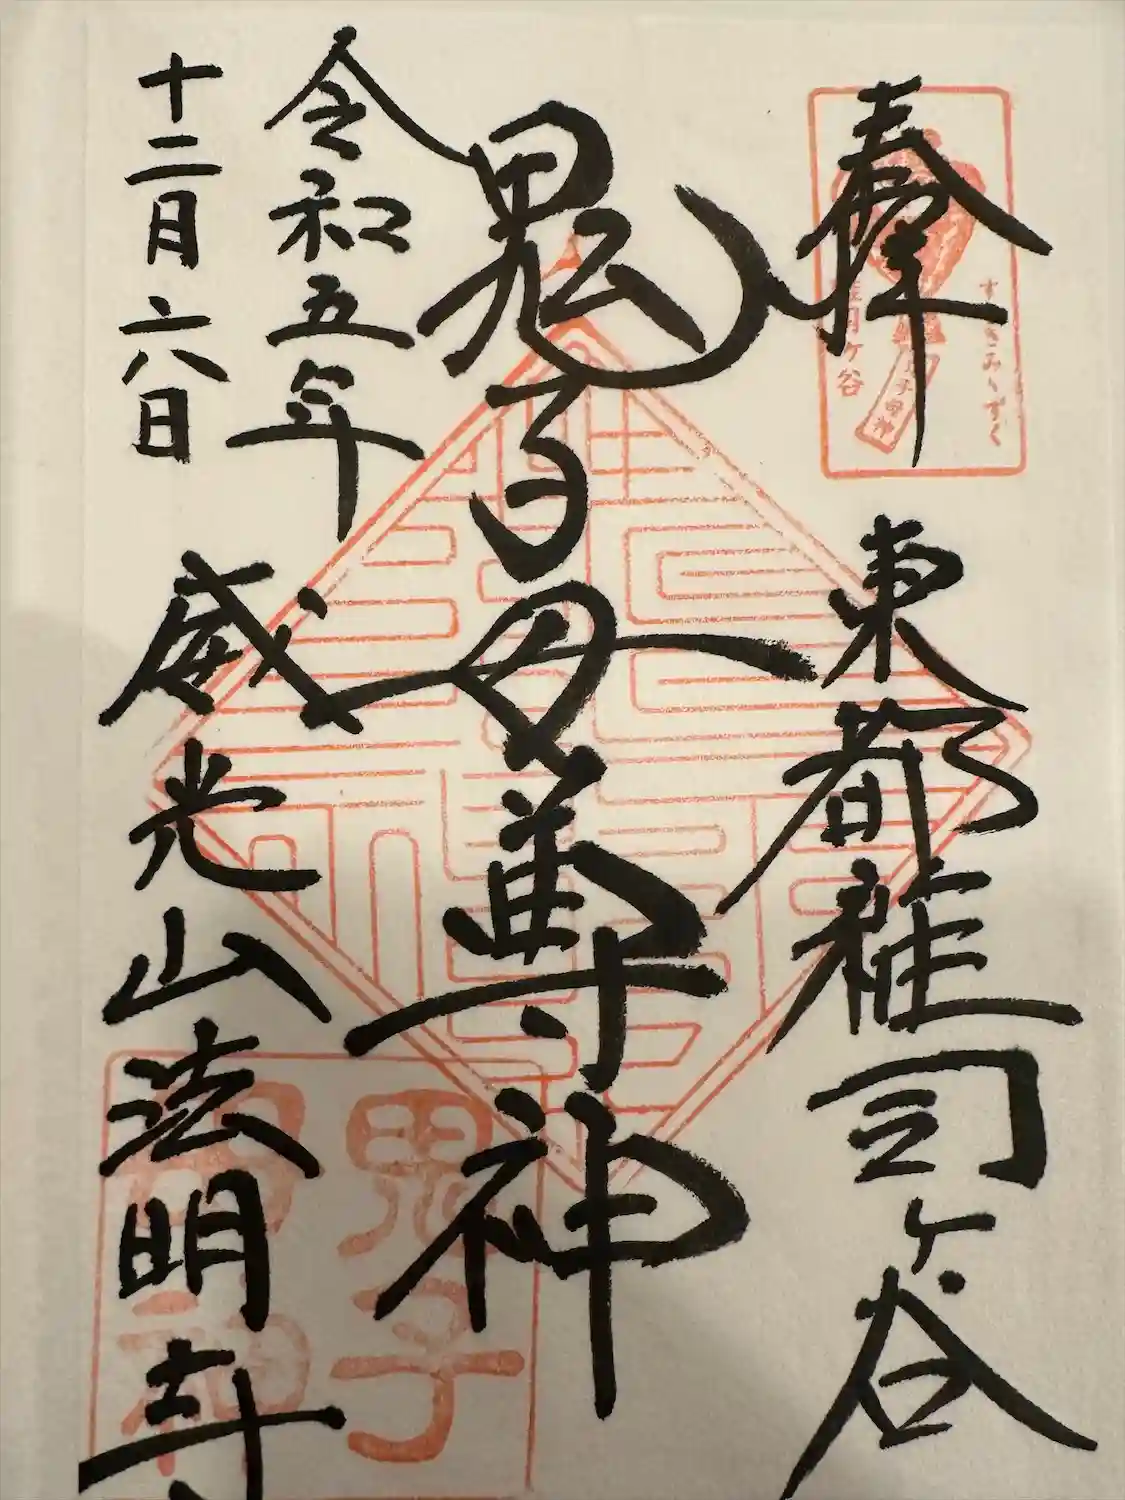 奉拝
東都雑司ヶ谷
鬼子母尊神
令和五年
十二月六日
威光山法明寺
すすきみゝずく
雑司ヶ谷
鬼子母神
鬼子
母神